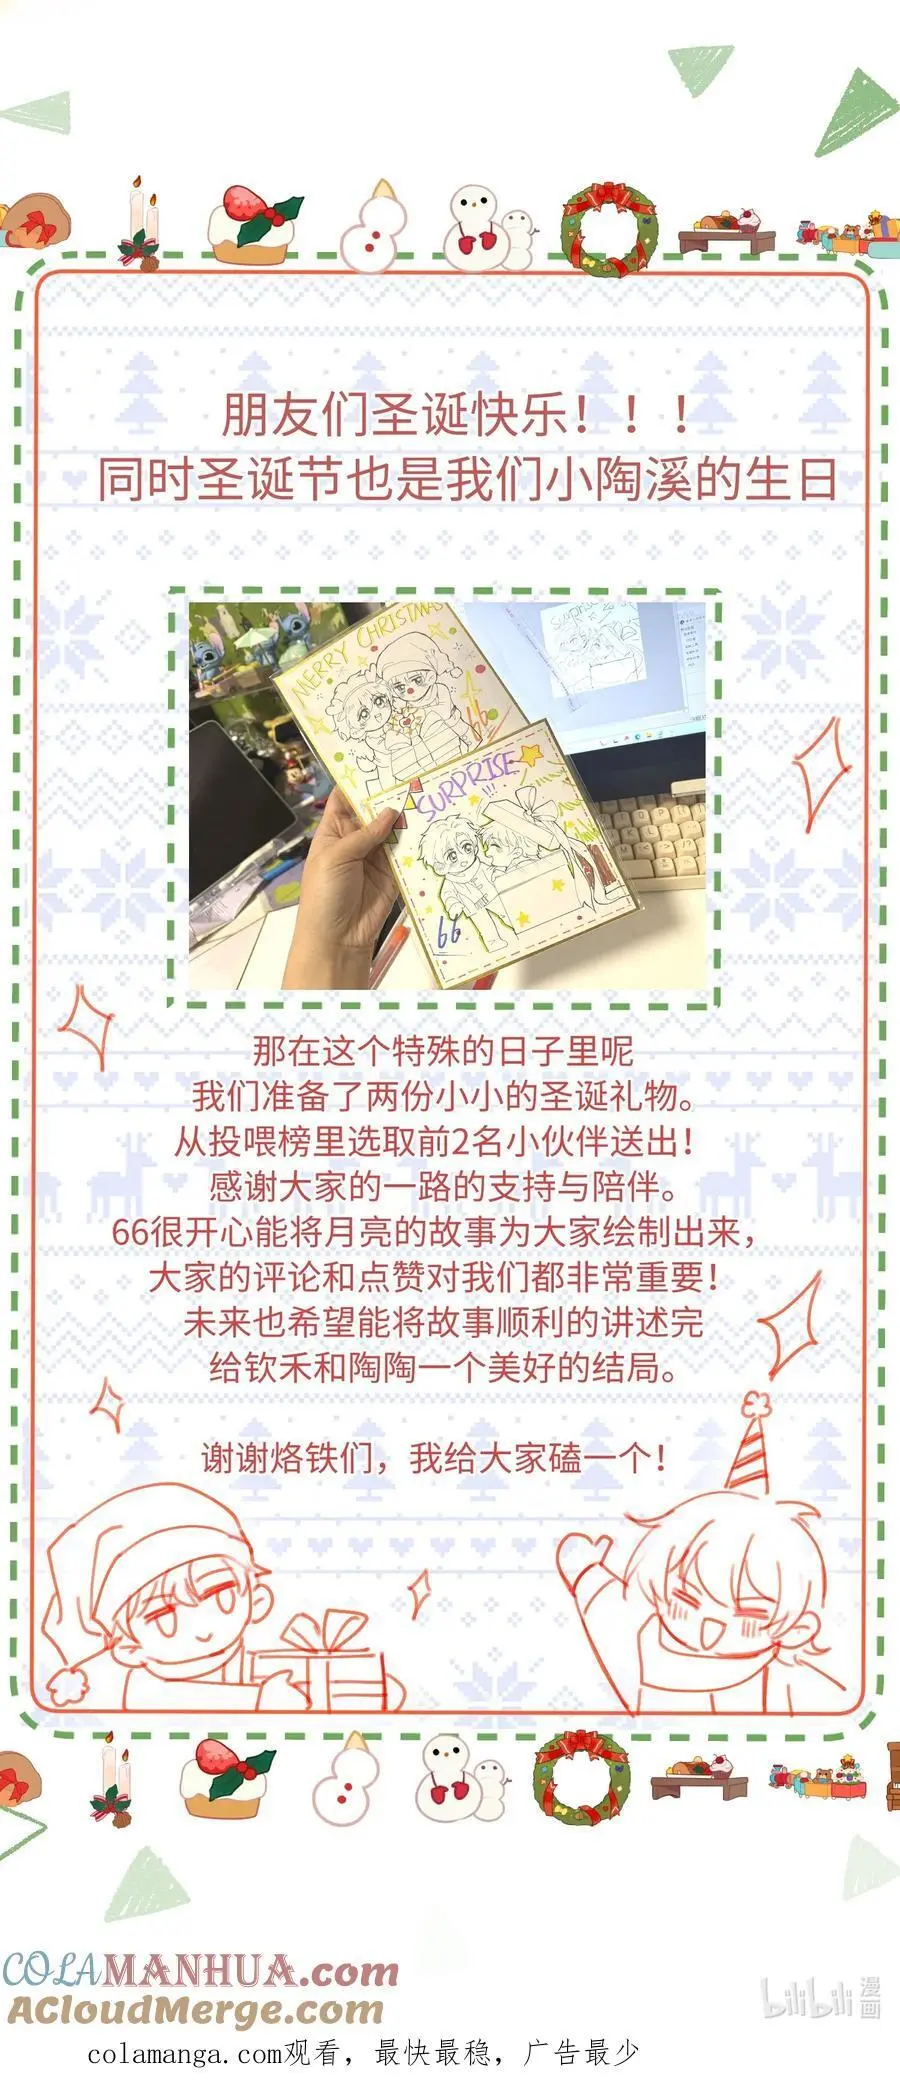 朋友们圣诞快乐！！！
同时圣诞节也是我们小陶溪的生日
MERRY CHRISTMAS
66
SURPRISE
!!!
66
那在这个特殊的日子里呢
我们准备了两份小小的圣诞礼物。
从投喂榜里选取前2名小伙伴送出！
感谢大家的一路的支持与陪伴。
66很开心能将月亮的故事为大家绘制出来，
大家的评论和点赞对我们都非常重要！
未来也希望能将故事顺利的讲述完
给钦禾和陶陶一个美好的结局。
谢谢烙铁们，我给大家磕一个！
COLAMANHUA.com
ACloudMerge.com
bilibili漫画
colamanga.com观看，最快最稳，广告最少